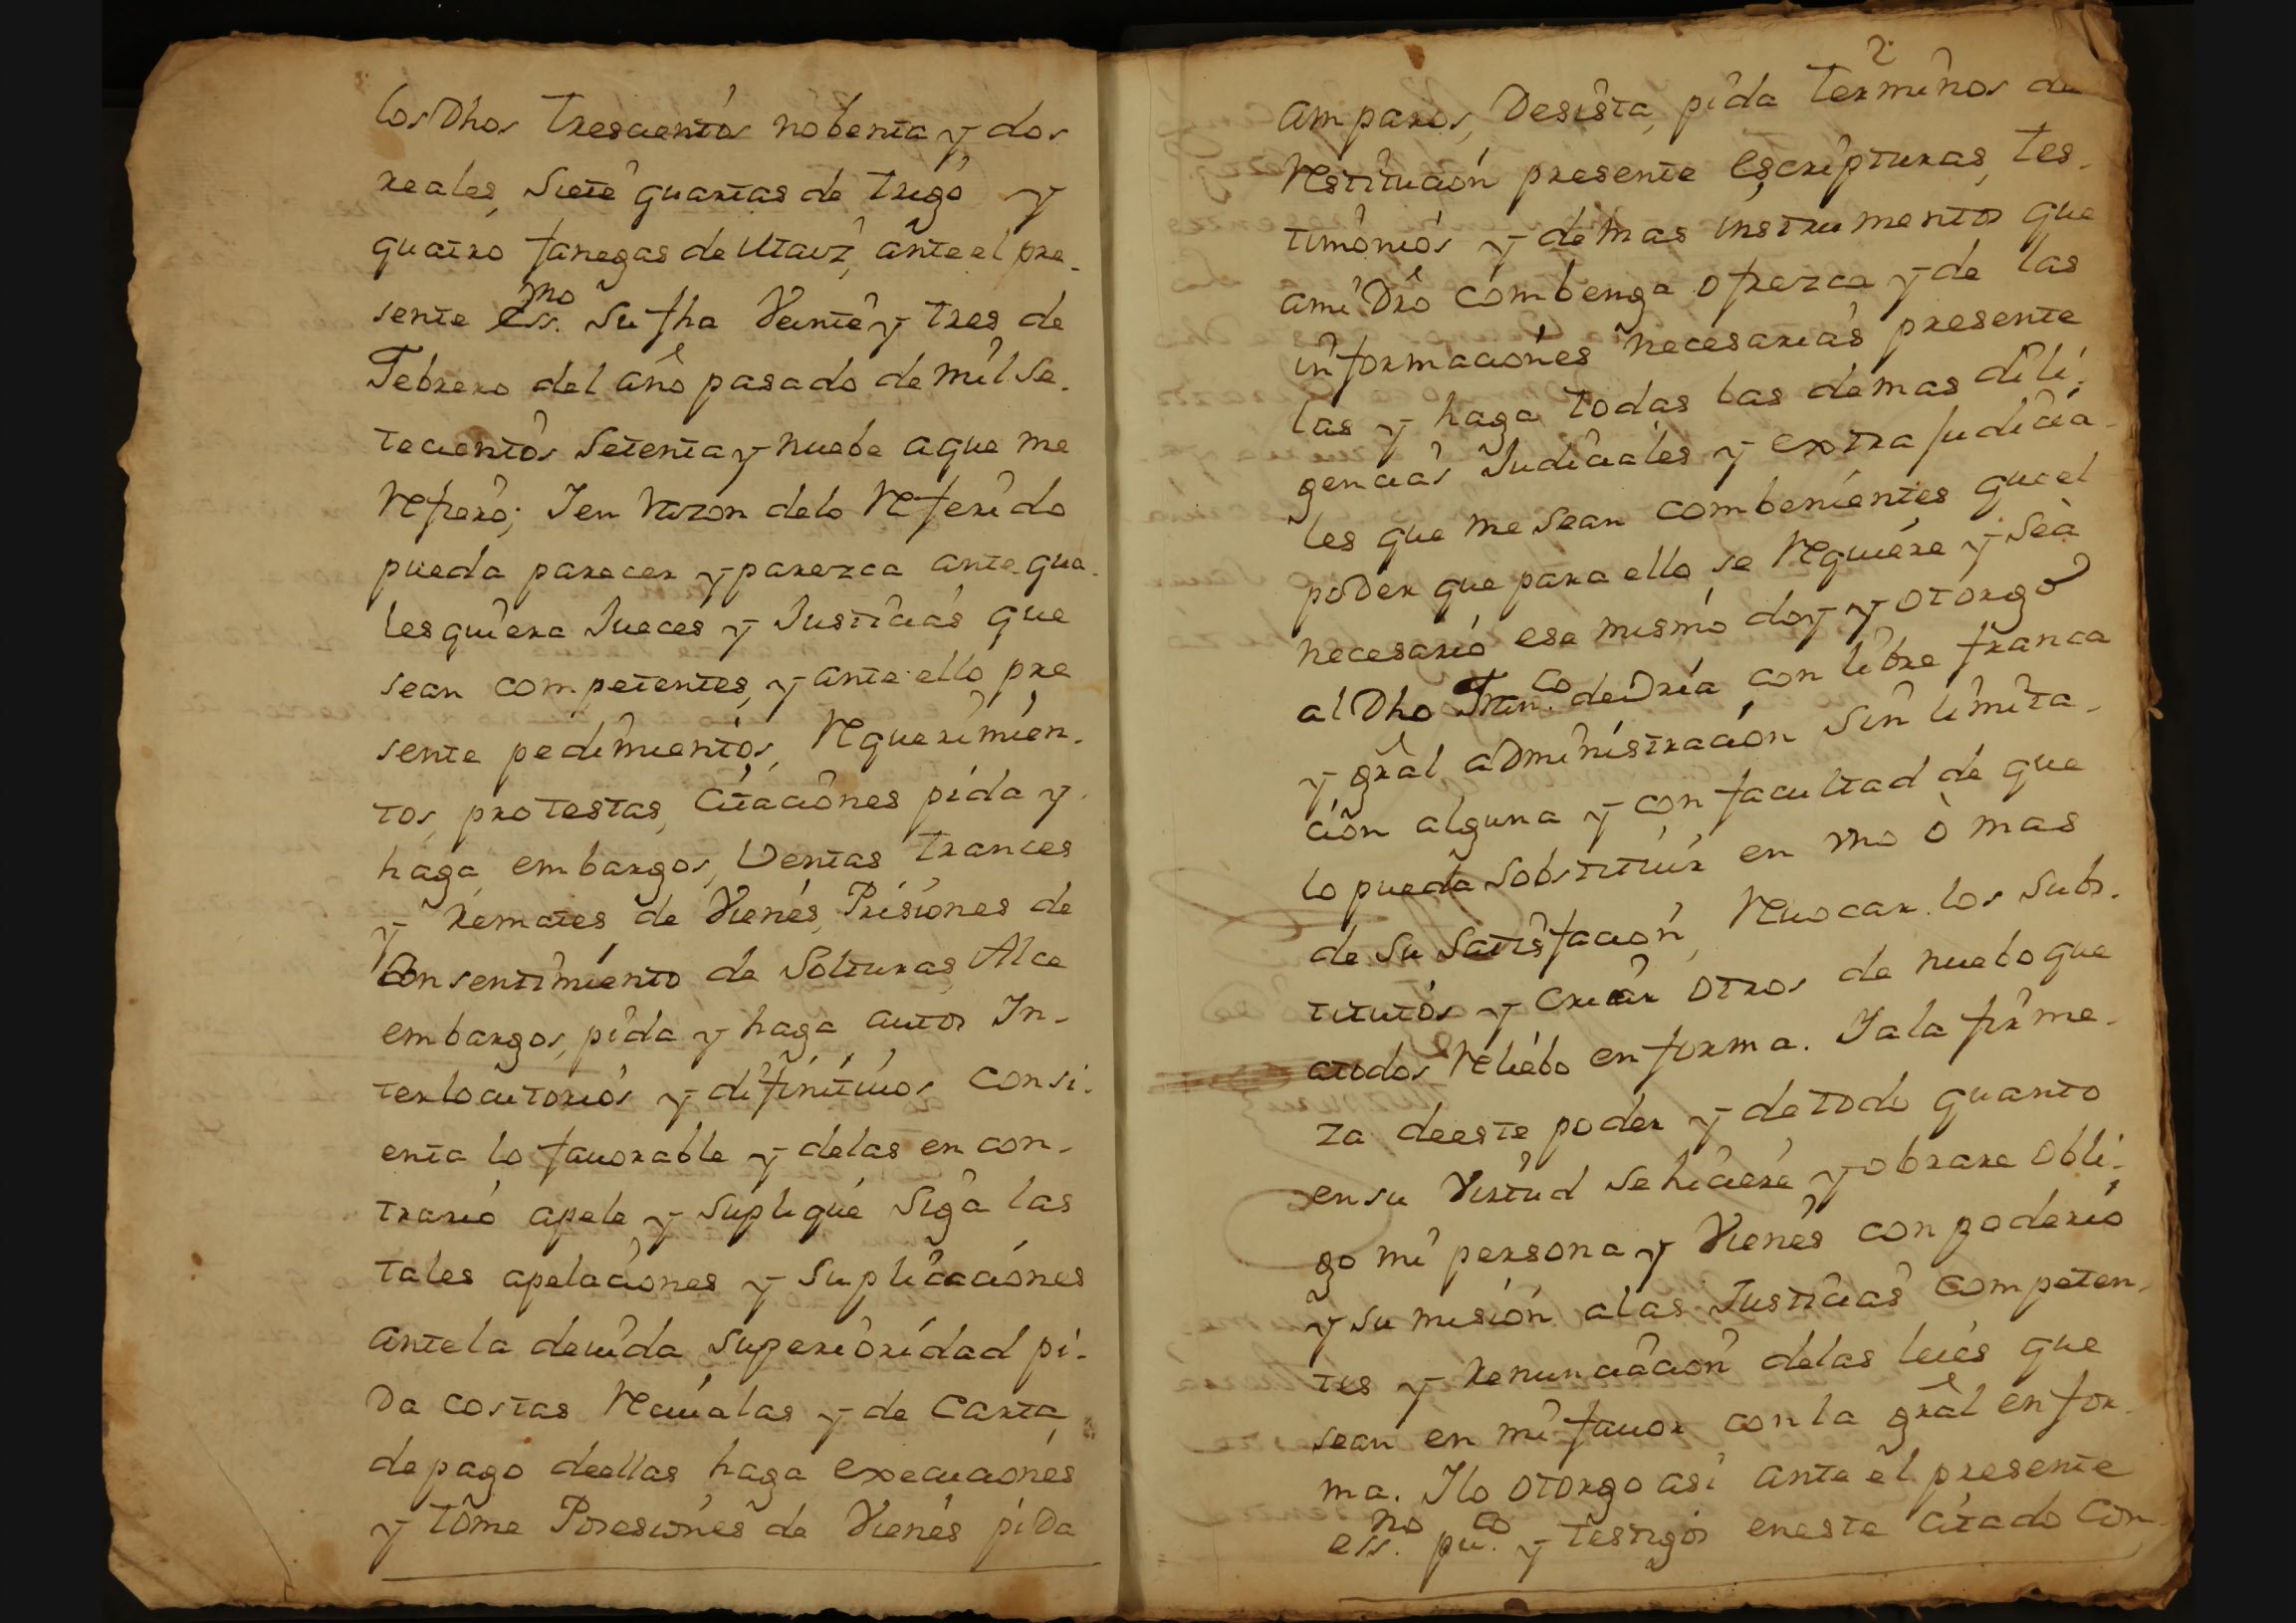 los Dhos trescientos nobenta y dos
reales, siete quartas de trigo y
quatro fanegas de Maiz, ante el pre-
sente Ess.no su fha Veinte y tres de
Febrero del año pasado de mil Se-
tecientos Setenta y nuebe a que me
Refiero; I en Razon de lo Referido
pueda parecer y parezca ante qua-
lesquiera Jueces y Justicias que
sean competentes, y ante ello pre
sente pedimientos, Requerimien-
tos, protestas, Citaciones pida y
haga embargos, Ventas trances
y Remates de Vienes, Prisiones de
Consentimiento de Solturas Alce
embargos, pida y haga autos In-
terlocutorios y difinitiuos consi-
enta lo fauorable y de las en con-
trario apele y suplique Siga las
tales apelaciones y Suplicaciones
ante la deuida superioridad pi-
Da costas Reciualas y de Carta
de pago de ellas haga execuciones
y tome Posesiones de Vienes piDa
2
amparos, Desista, pida terminos de
Restitucion presente escripturas, tes-
timonios y demas instrumentos que
a mi Dro combenga ofrezca y de las
informaciones necesarias presente
las y haga todas las demas dili-
gencias Judiciales y extra judicia-
les que me sean combenientes que el
poDer que para ello se Requiere y sea
necesario ese mismo doy y otorgo
al Dho Fran.co de Dria con libre franca
y gral aDministracion Sin limita-
cion alguna y con facultad de que
lo pueda sobstituir en vno ò mas
de su satisfacion, Reuocar los subs-
titutos y Criar otros de nuebo que
a todos Reliebo en forma. I a la firme-
za de este poder y de todo quanto
en su Virtud se hiciere y obrare obli-
go mi persona y Vienes con poderio
y sumision a las Justicias competen-
tes y Renunciacion de las leies que
sean en mi fauor con la gral en for-
ma. I lo otorgo asi ante el presente
ess.no pu.co y testigos en este citado Con